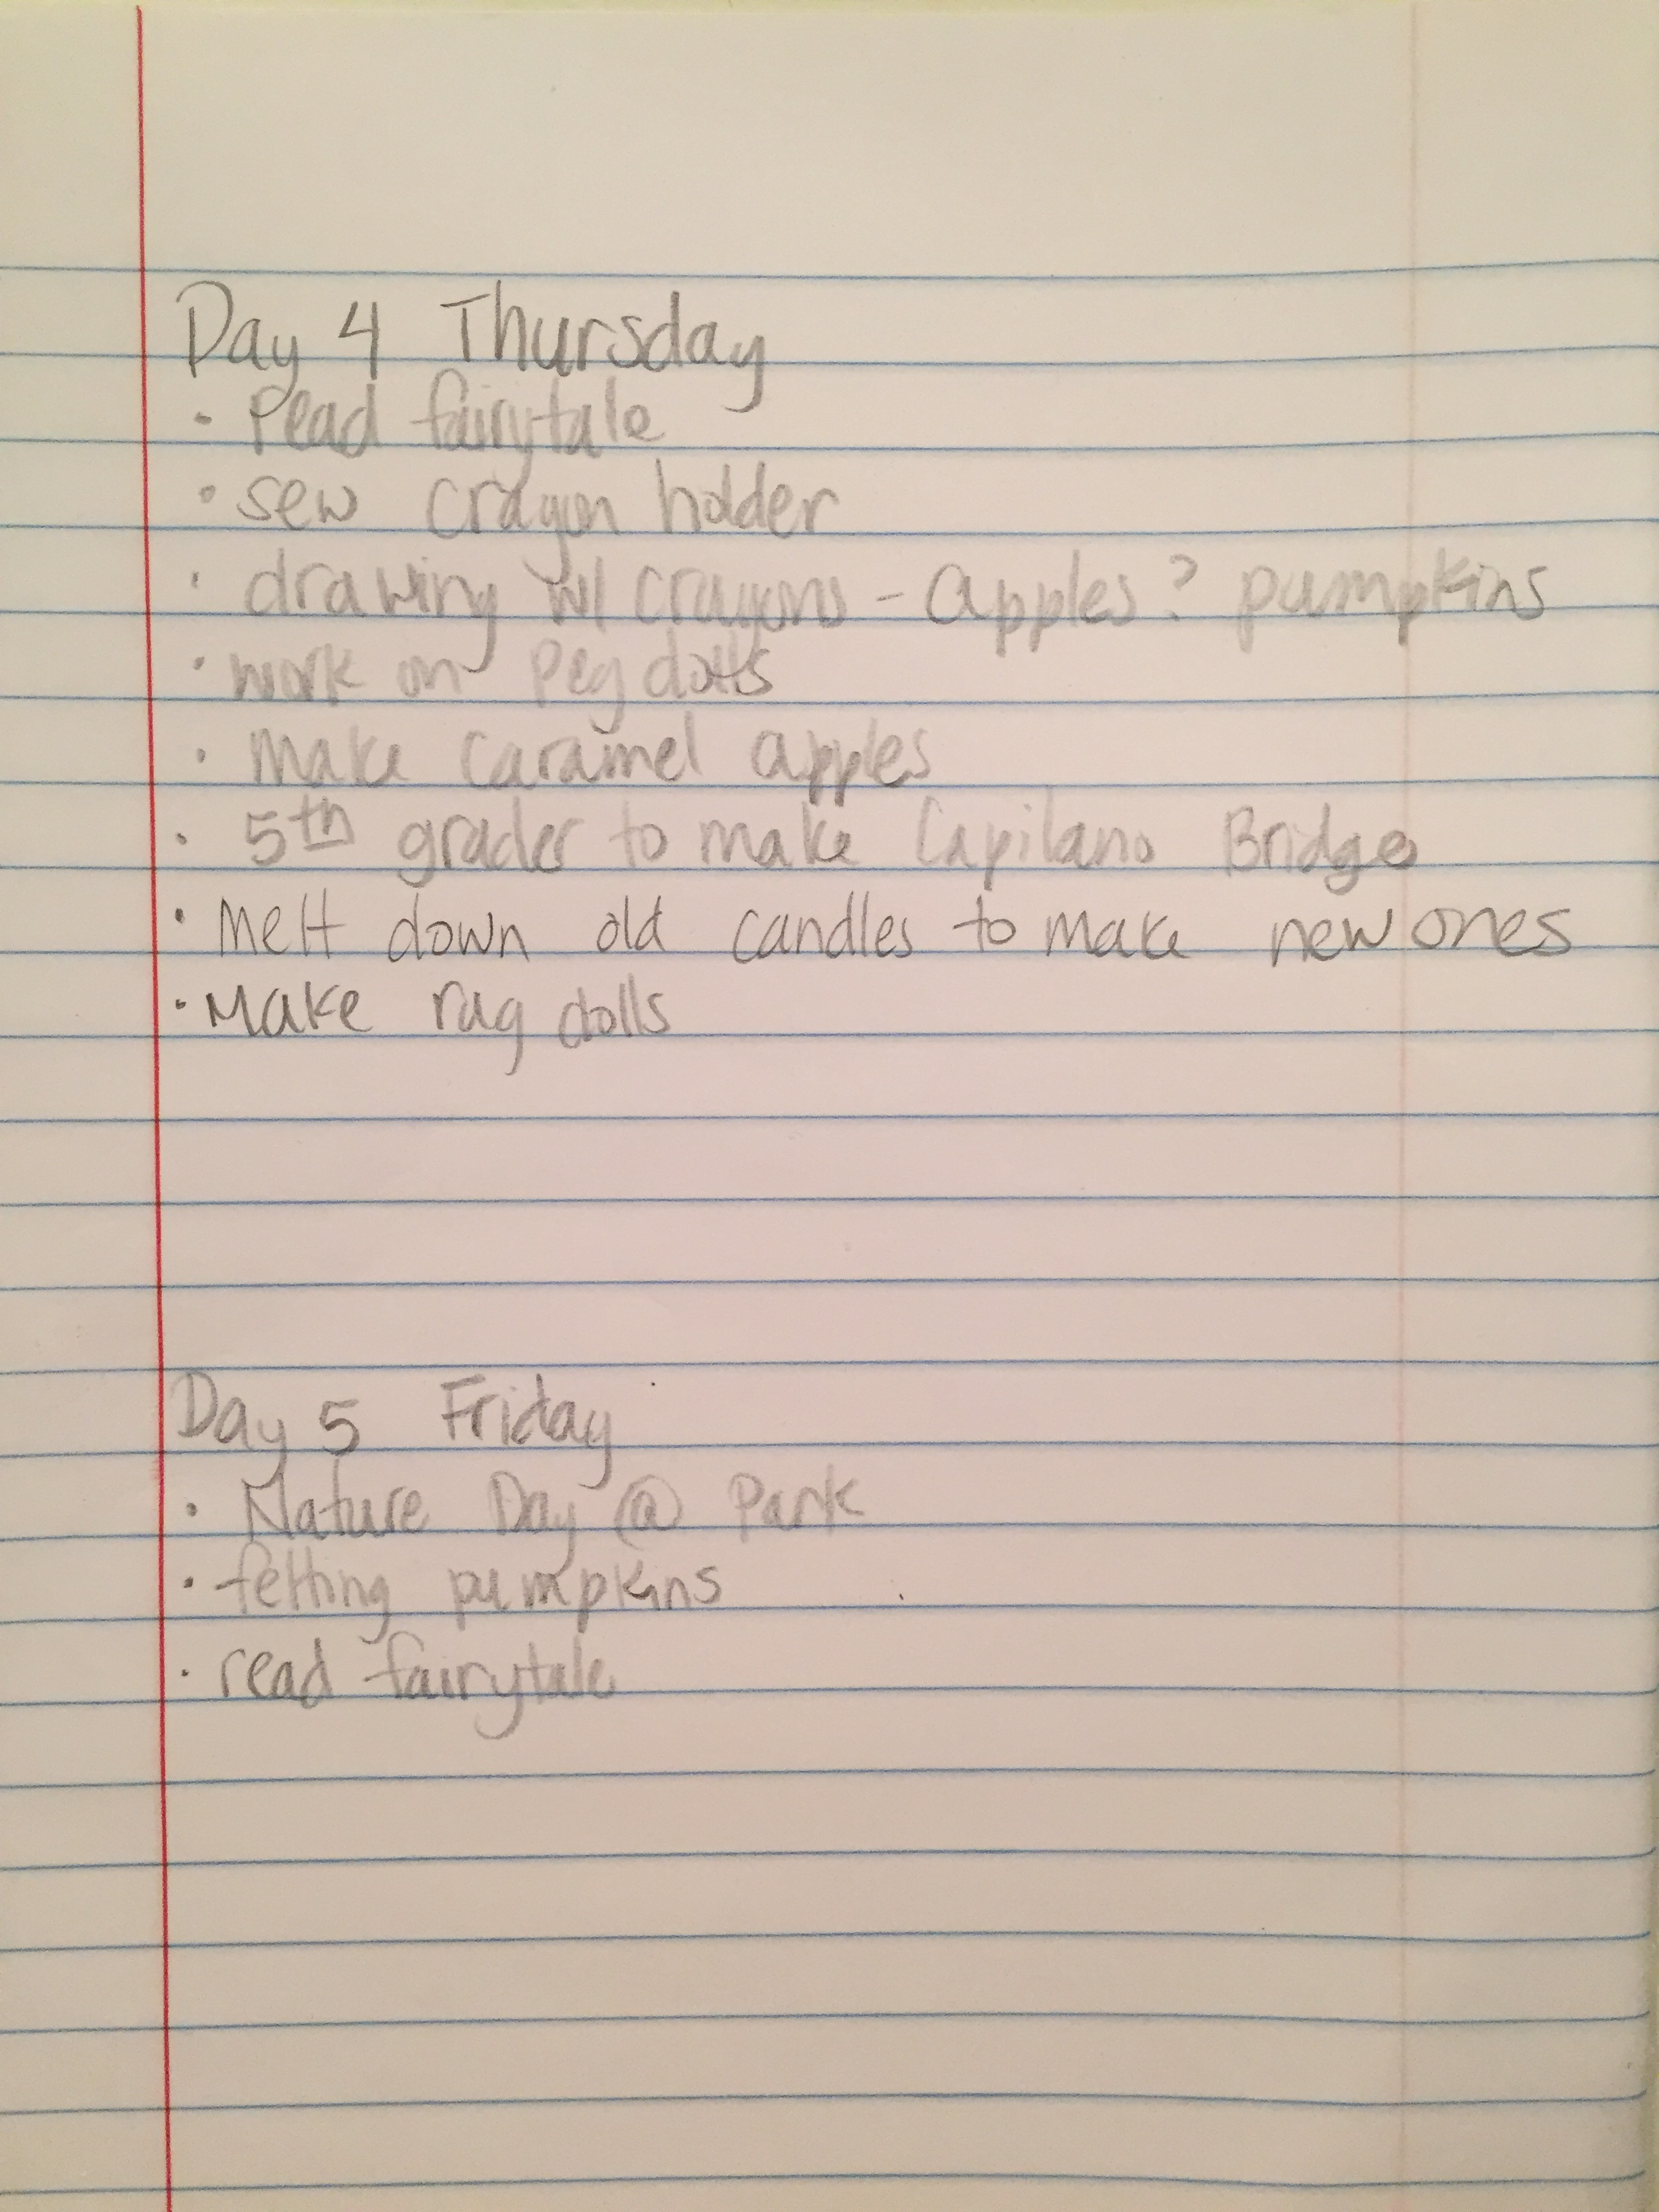 Day 4 Thursday
· Read fairytale
· sew crayon holder
· drawing w/ crayons - apples? pumpkins
· work on peg dolls
· Make caramel apples
· 5th grader to make Capilano Bridge
· Melt down old candles to make new ones
· Make rag dolls
Day 5 Friday
· Nature Day @ Park
· felting pumpkins
· read fairytale